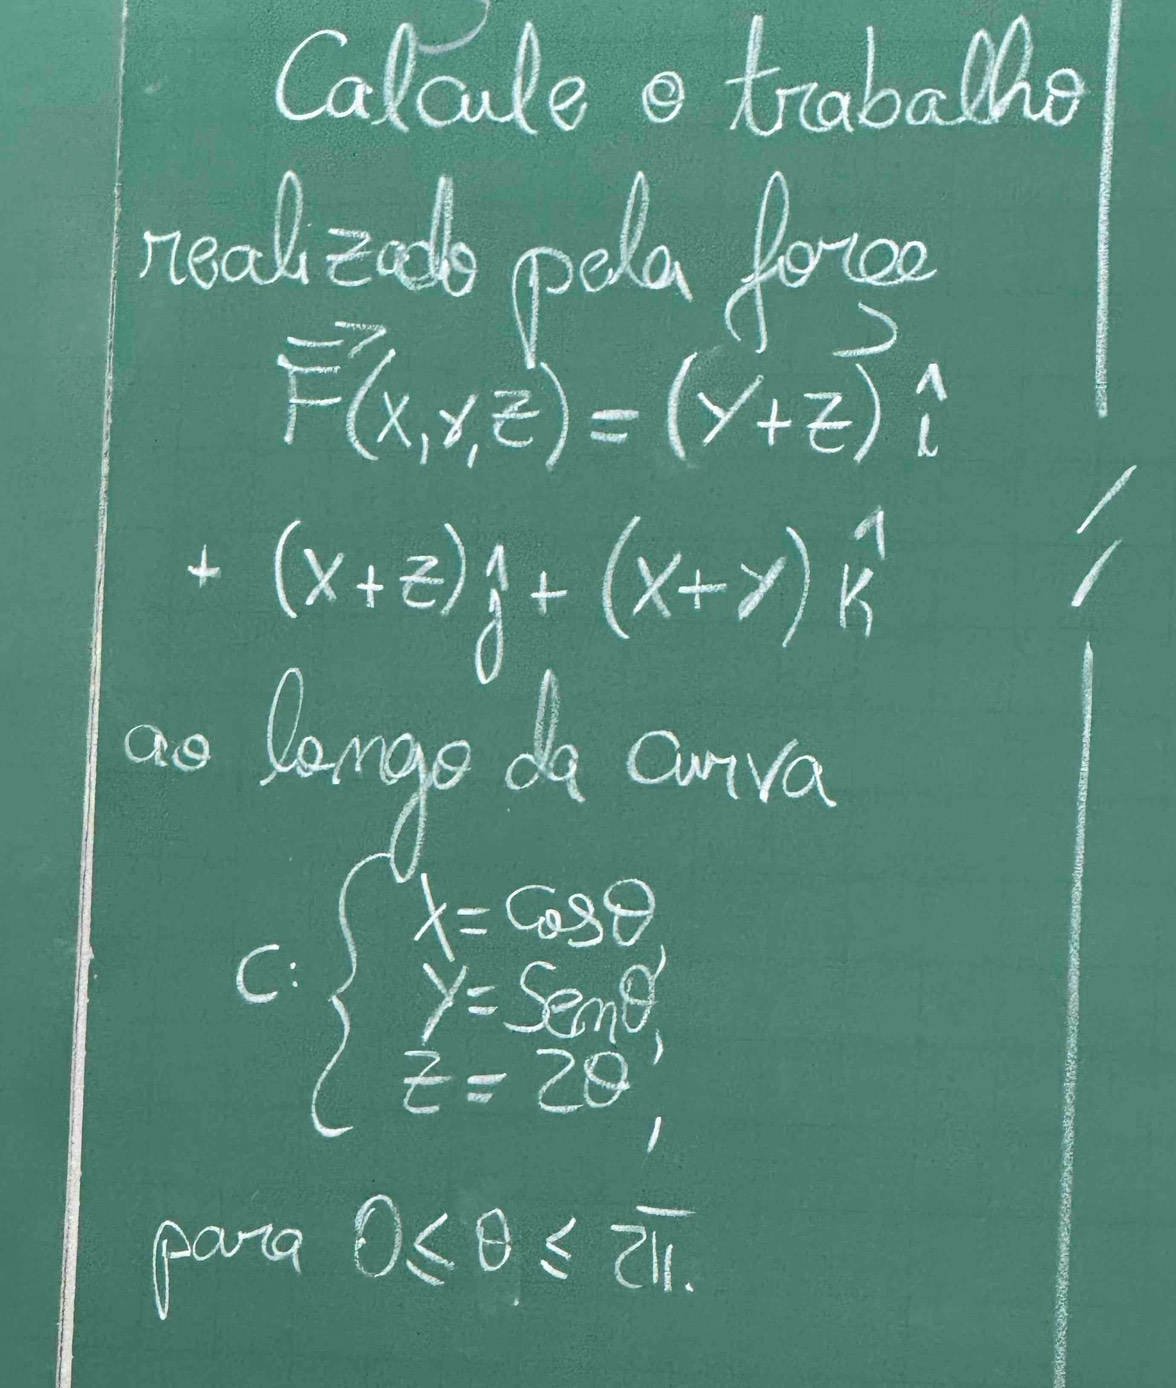 Calcule o trabalho
realizado pela força
F⃗(x,y,z) = (y+z) î
+ (x+z) ĵ + (x+y) k̂
ao longo da curva
C: { x = cosθ,
y = senθ,
z = 2θ,
para 0 ≤ θ ≤ 2π.